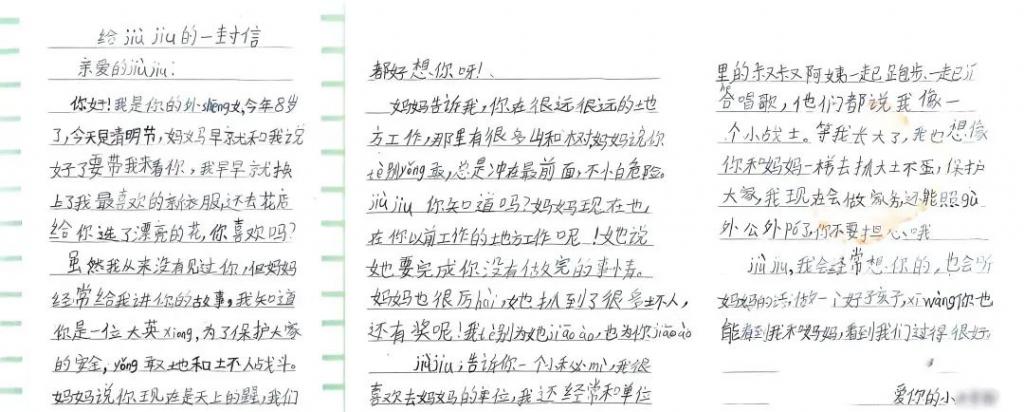 给jiù jiu的一封信
亲爱的jiùjiu:
你好!我是你的外shēng女,今年8岁
了,今天是清明节,妈妈早就和我说
好了要带我来看你,我早早就换
上了我最喜欢的新衣服,还去花店
给你选了漂亮的花,你喜欢吗?
虽然我从来没有见过你,但妈妈
经常给我讲你的故事,我知道
你是一位大英xiong,为了保护大家
的安全,yǒng敢地和坏人战斗。
妈妈说你现在是天上的星星,我们
都好想你呀!
妈妈告诉我,你在很远很远的地
方工作,那里有很多山和树妈妈说你
特别yǒng敢,总是冲在最前面,不小白危险。
jiù jiu 你知道吗?妈妈现在也
在你以前工作的地方工作呢!她说
她要完成你没有做完的事情。
妈妈也很厉hài,她也抓到了很多坏人,
还有奖呢!我特别为她jiāo ào,也为你jiāo ào
jiùjiu,告诉你一个小秘mì,我很
喜欢去妈妈的单位,我还经常和单位
里的叔叔阿姨一起跑步、一起
合唱歌,他们都说我像一
个小战士。等我长大了,我也想像
你和妈妈一样去抓大坏蛋,保护
大家,我现在会做家务还能照gù
外公外pó了你不要担心哦
jiùjiu,我会经常想你的,也会听
妈妈的话,做一个好孩子,xī wàng你也
能看到我和妈妈,看到我们过得很好。
爱你的小